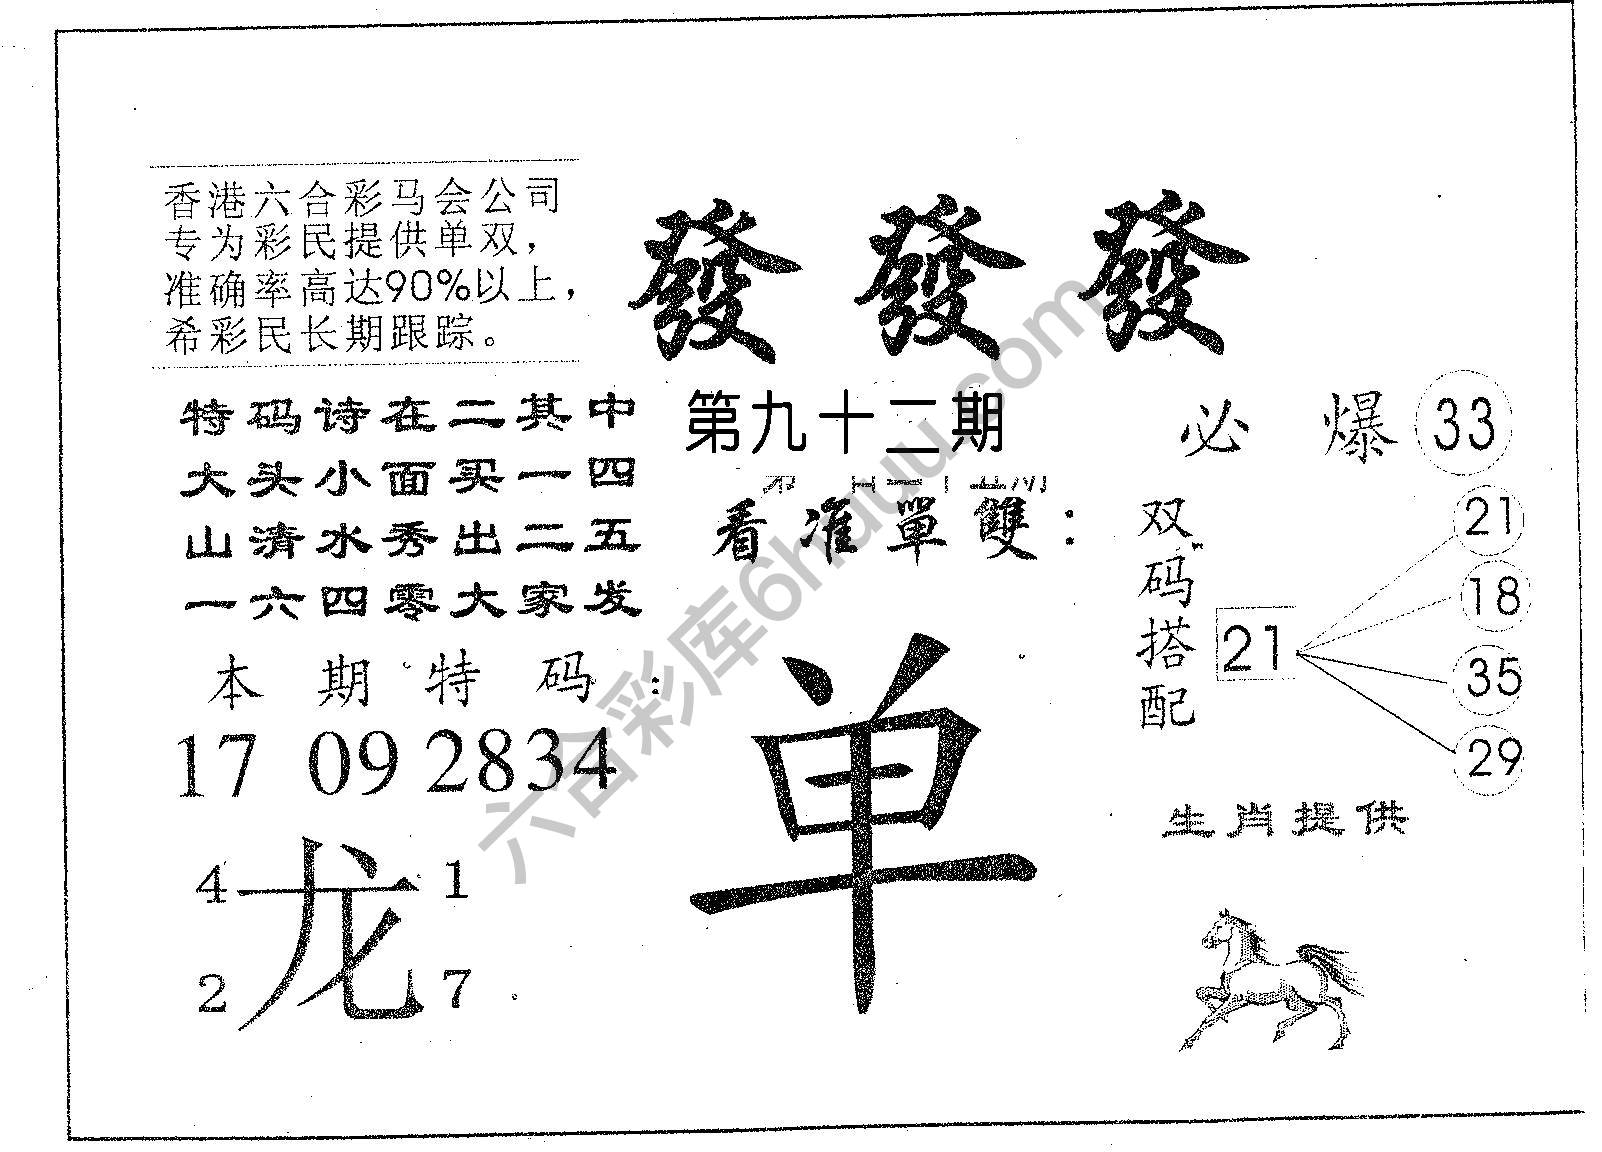 香港六合彩马会公司
专为彩民提供单双，
准确率高达90%以上，
希彩民长期跟踪。
發 發 發
特码诗在二其中
大头小面买一四
山清水秀出二五
一六四零大家发
第九十二期
看准單雙：
单
必 爆 33
双码搭配
21
21
18
35
29
本期特码：
17 09 28 34
龙
4 1
2 7
生肖提供
六合彩库6hauu.com